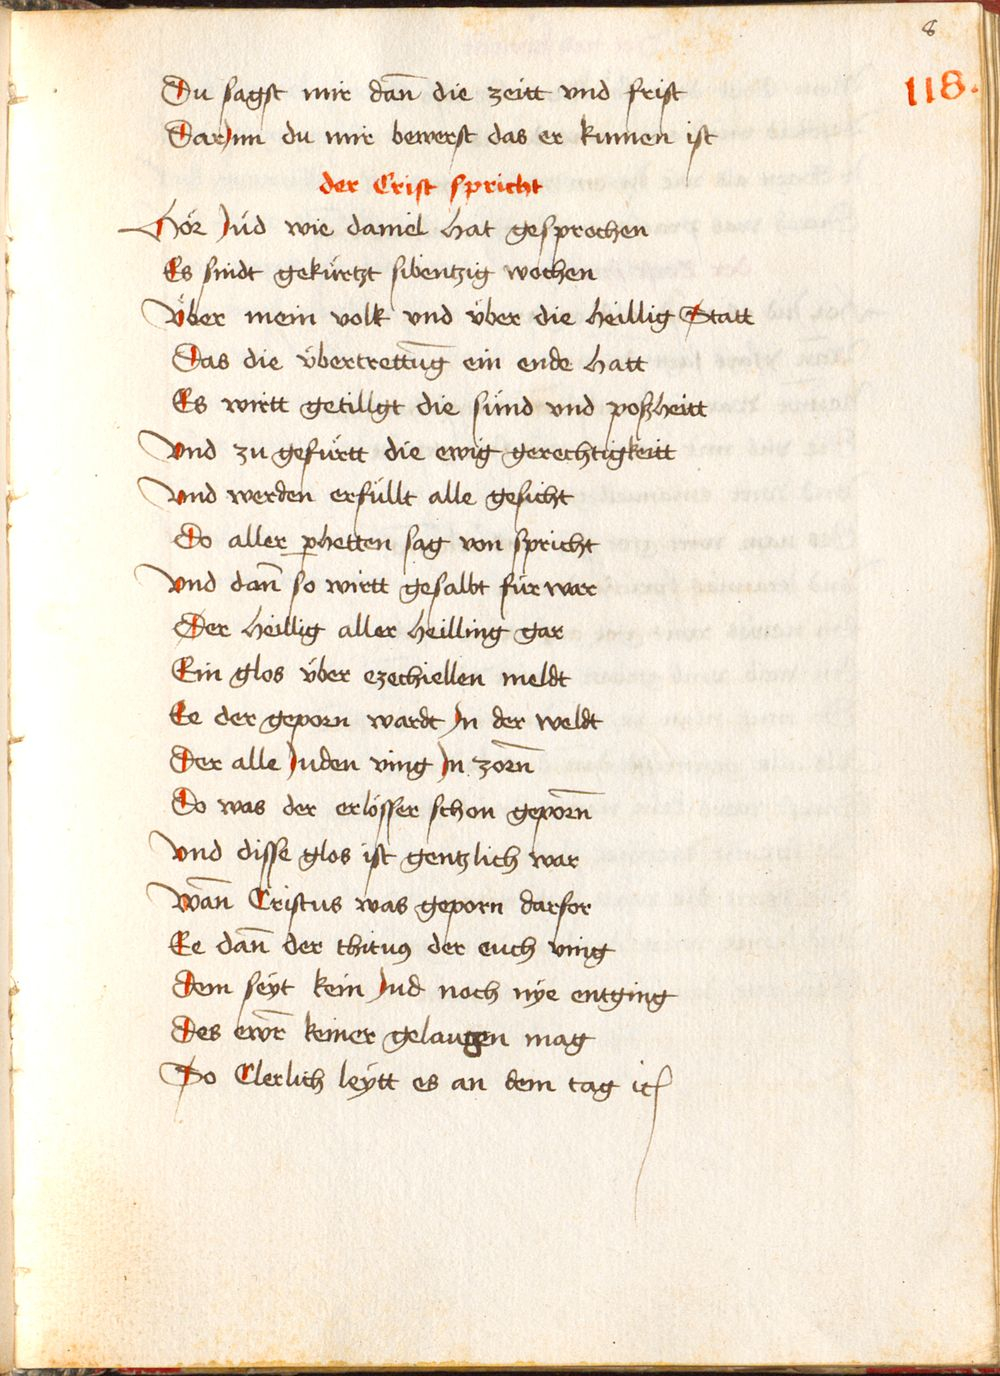 8
118.
Du sagst mir dan̄ die zeitt vnd frist
Darjnn du mir bewerst das er kumen ist
der Crist spricht
Hör Jüd wie daniel hat gesprochen
Es sindt gekürtzt sibentzig wochen
Vber mein volk vnd über die heillig Statt
Das die übertrettūg ein ende hatt
Es wirtt getillgt die sünd vnd poßheitt
Vnd zu gefürtt die ewig gerechtigkeitt
Vnd werden erfüllt alle gesicht
Do aller ꝓhetten sag von spricht
Vnd dan̄ so wirtt gesalbt für war
Der heillig aller heilling gar
Ein glos über ezechiellen meldt
Ee der geporn wardt Jn der weldt
Der alle Juden ving Jn zorn̄
Do was der erlösser schon geporn̄
Vnd disse glos ist gentzlich war
Wan̄ Cristus was geporn darfor
Ee dan̄ der thitus der euch ving
Dem seyt kein Jud noch nye entging
Des ewr̄ keiner gelaugen mag
So Clerlich leytt es an dem tag